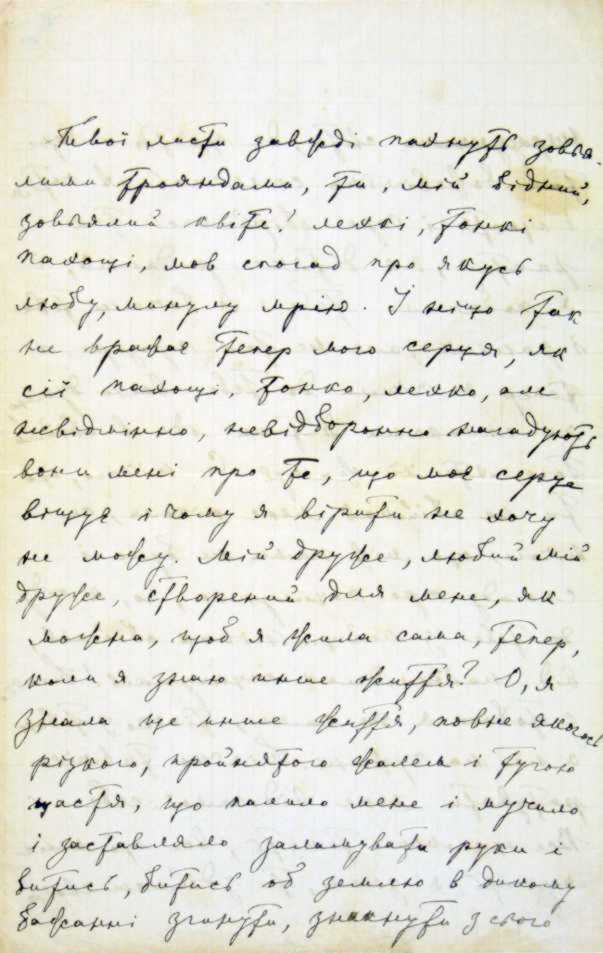 Твої листи завжді пахнуть зовъя-
лими трояндами, ти, мій бідний,
зовъялий квіте! Легкі, тонкі
пахощі, мов спогад про якусь
любу, минулу мрію. І ніщо так
не вражає тепер мого серця, як
сії пахощі, тонко, легко, але
невідмінно, невідборонно нагадують
вони мені про те, що моє серце
віщує і чому я вірити не хочу
не можу. Мій друже, любий мій
друже, створений для мене, як
можна, щоб я жила сама, тепер,
коли я знаю инше життя? О, я
знала ще инше життя, повне якогось
різкого, пройнятого жалем і тугою
щастя, що палило мене і мучило
і заставляло заламувати руки і
битись, битись об землю в дикому
бажанні згинути, зникнути з сього